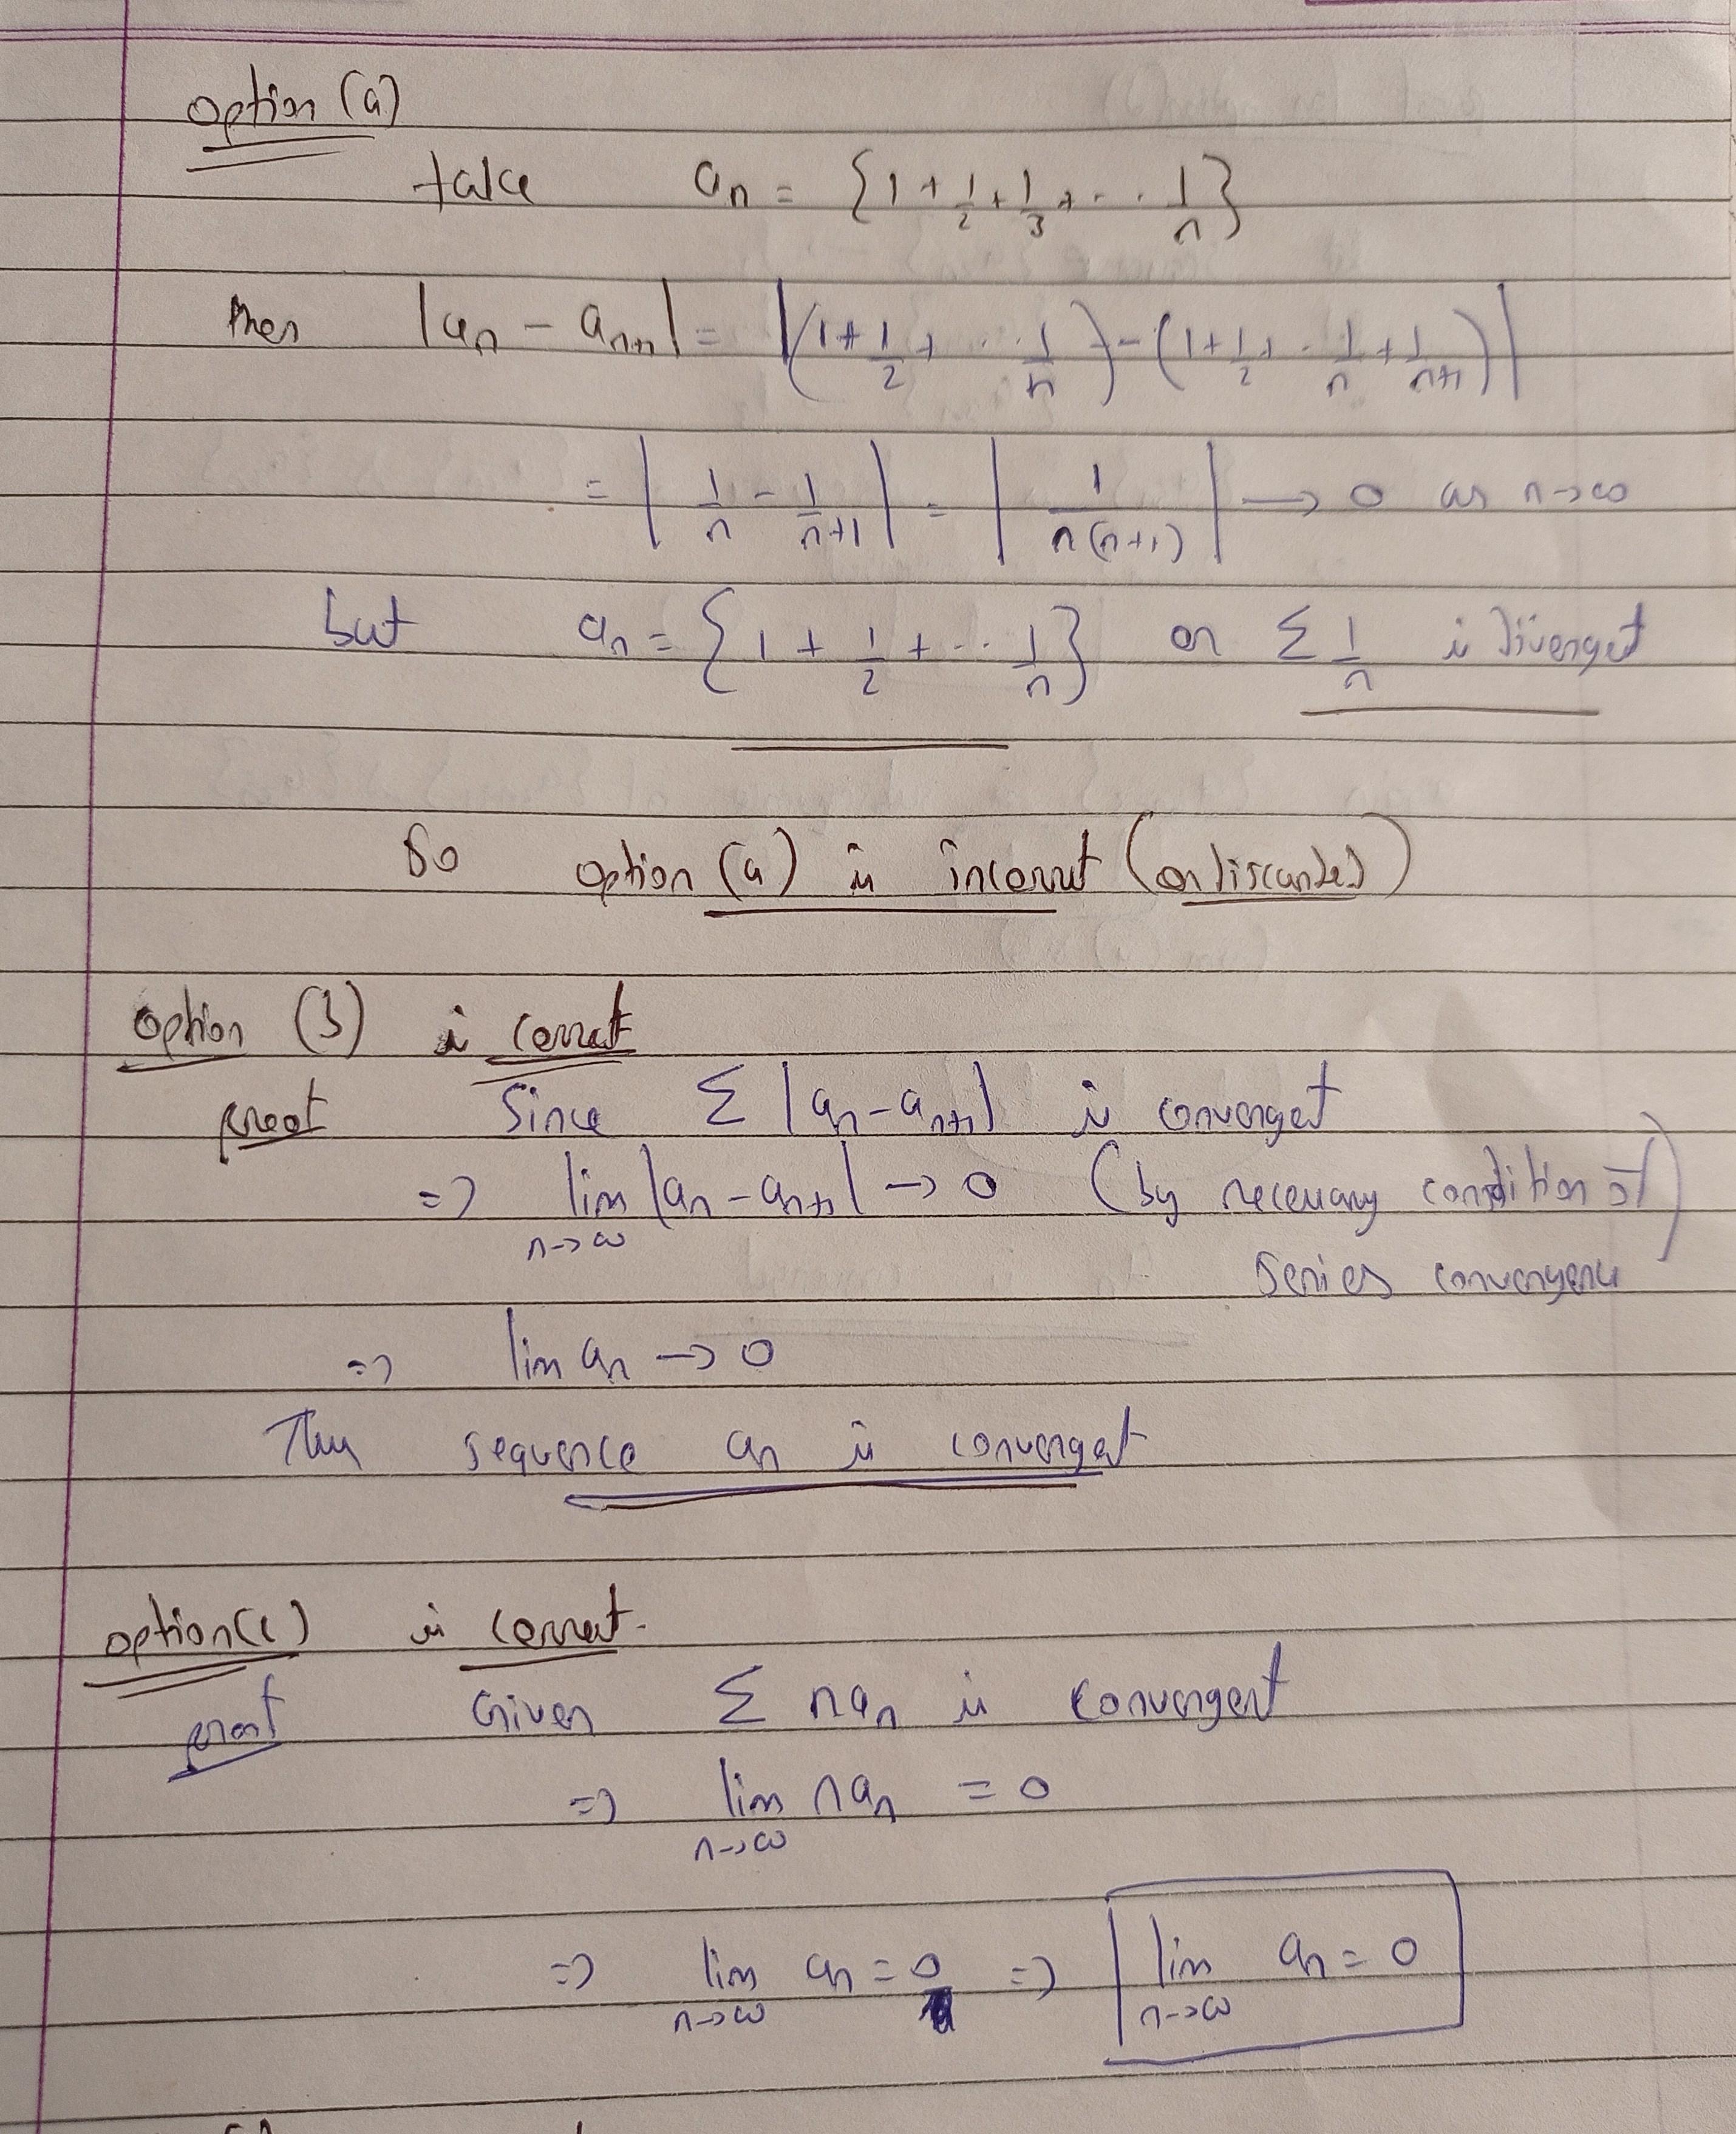 option (a)
take aₙ = {1 + 1/2 + 1/3 + ... 1/n}
then |aₙ - aₙ₊₁| = |(1 + 1/2 + ... 1/n) - (1 + 1/2 + . 1/n + 1/n+1)|
= |1/n - 1/n+1| = |1/n(n+1)| → 0 as n→∞
but aₙ = {1 + 1/2 + ... 1/n} or Σ 1/n is divergent
So option (a) is incorrect (or discarded)
option (b) is correct
proof Since Σ |aₙ - aₙ₊₁| is convergent
=> lim n→∞ |aₙ - aₙ₊₁| → 0 (by necessary condition of
series convergence)
=> lim aₙ → 0
Thus sequence aₙ is convergent
option (c) is correct.
proof Given Σ naₙ is convergent
=> lim n→∞ naₙ = 0
=> lim n→∞ aₙ = 0 => lim n→∞ aₙ = 0